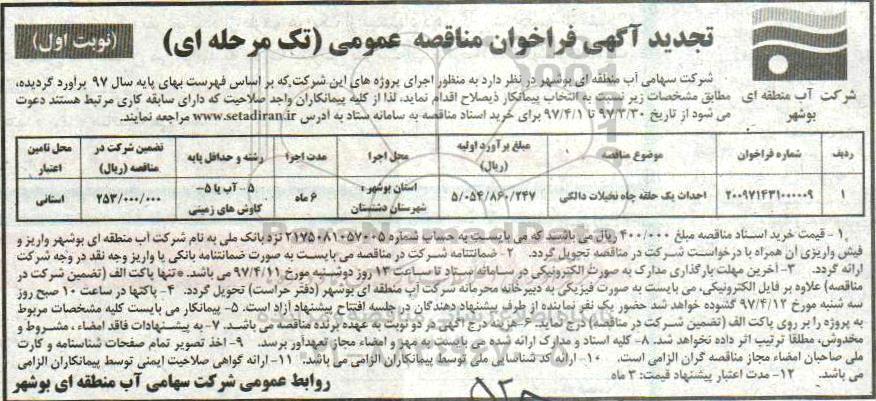 تجدید آگهی فراخوان مناقصه عمومی (تک مرحله ای)
(نوبت اول)
شرکت آب منطقه ای
بوشهر
شرکت سهامی آب منطقه ای بوشهر در نظر دارد به منظور اجرای پروژه های این شرکت که بر اساس فهرست بهای پایه سال ۹۷ برآورد گردیده،
مطابق مشخصات زیر نسبت به انتخاب پیمانکار ذیصلاح اقدام نماید، لذا از کلیه پیمانکاران واجد صلاحیت که دارای سابقه کاری مرتبط هستند دعوت
می شود از تاریخ ۹۷/۳/۳۰ تا ۹۷/۴/۱ برای خرید اسناد مناقصه به سامانه ستاد به آدرس www.setadiran.ir مراجعه نمایند.
ردیف | شماره فراخوان | موضوع مناقصه | مبلغ برآورد اولیه (ریال) | محل اجرا | مدت اجرا | رشته و حداقل پایه | تضمین شرکت در مناقصه (ریال) | محل تامین اعتبار
۱ | ۲۰۰۹۷۱۴۳۱۰۰۰۰۰۹ | احداث یک حلقه چاه نخیلات دالکی | ۵/۰۵۴/۸۶۰/۲۴۷ | استان بوشهر: شهرستان دشتستان | ۶ ماه | ۵- آب یا ۵- کاوش های زمینی | ۲۵۳/۰۰۰/۰۰۰ | استانی
۱- قیمت خرید اسناد مناقصه مبلغ ۴۰۰/۰۰۰ ریال می باشند که می بایست به حساب شماره ۲۱۷۵۰۸۱۰۵۷۰۰۵ نزد بانک ملی به نام شرکت آب منطقه ای بوشهر واریز و
فیش واریزی آن همراه با درخواست شرکت در مناقصه تحویل گردد. ۲- ضمانتنامه شرکت در مناقصه می بایست به صورت ضمانتنامه بانکی یا واریز وجه نقد در وجه شرکت
ارائه گردد. ۳- آخرین مهلت بارگذاری مدارک به صورت الکترونیکی در سامانه ستاد تا ساعت ۱۳ روز دوشنبه مورخ ۹۷/۴/۱۱ می باشد. *تنها پاکت الف (تضمین شرکت در
مناقصه) علاوه بر فایل الکترونیکی، می بایست به صورت فیزیکی به دبیرخانه محرمانه شرکت آب منطقه ای بوشهر (دفتر حراست) تحویل گردد. ۴- پاکتها در ساعت ۱۰ صبح روز
سه شنبه مورخ ۹۷/۴/۱۲ گشوده خواهد شد حضور یک نفر نماینده از طرف پیشنهاد دهندگان در جلسه افتتاح پیشنهاد آزاد است. ۵- پیمانکار می بایست کلیه مشخصات مربوط
به پروژه را بر روی پاکت الف (تضمین شرکت در مناقصه) درج نماید. ۶- هزینه درج آگهی در دو نوبت به عهده برنده مناقصه می باشد. ۷- به پیشنهادات فاقد امضاء، مشروط و
مخدوش، مطلقا ترتیب اثر داده نخواهد شد. ۸- کلیه اسناد و مدارک ارائه شده می بایست به مهر و امضاء مجاز تعهدآور برسد. ۹- اخذ تصویر تمام صفحات شناسنامه و کارت
ملی صاحبان امضاء مجاز مناقصه گران الزامی است. ۱۰- ارائه کد شناسایی ملی توسط پیمانکاران الزامی می باشد. ۱۱- ارائه گواهی صلاحیت ایمنی توسط پیمانکاران الزامی
می باشد. ۱۲- مدت اعتبار پیشنهاد قیمت: ۳ ماه
روابط عمومی شرکت سهامی آب منطقه ای بوشهر
ParsNamadData